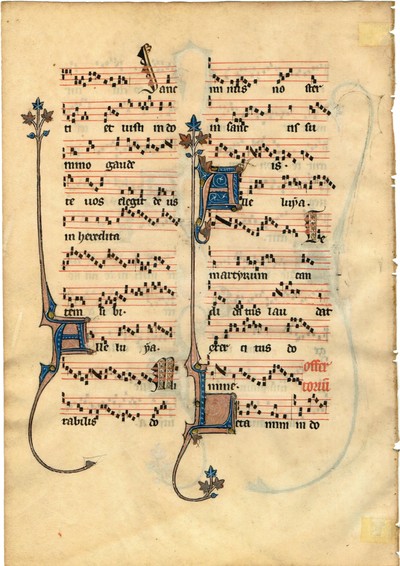 Sanc
ti et iusti in do
mino gaude
te uos elegit de us
in heredita
tem si bi.
Alle lu ya.
Mi
rabilis do
mi nus no ster
in sanc tis su
is.
Alle luya.
Te
martyrum can
di da tus lau dat
exer ci tus do
mine. offer
torium
Leta mini in do